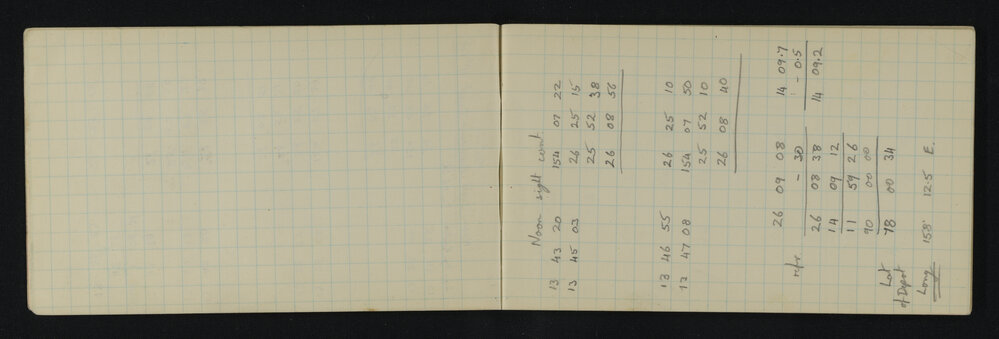 Noon sight cont
13 43 20 154 07 22
13 45 03 26 25 15
25 52 38
26 08 56
13 46 55 26 25 10
13 47 08 154 07 50
25 52 10
26 08 40
26 09 08 14 09.7
refr. - 30 - 0.5
26 08 38 14 09.2
14 09 12
11 59 26
90 00 00
Lat 78 00 34
of Depot
Long 158° 12.5 E.